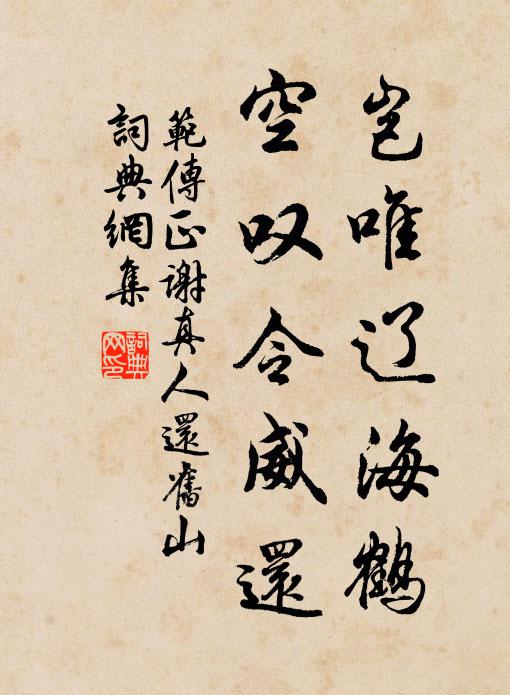 岂唯辽海鹤
空叹令威還
範傳正謝真人還舊山
詞典網集
詞典網印